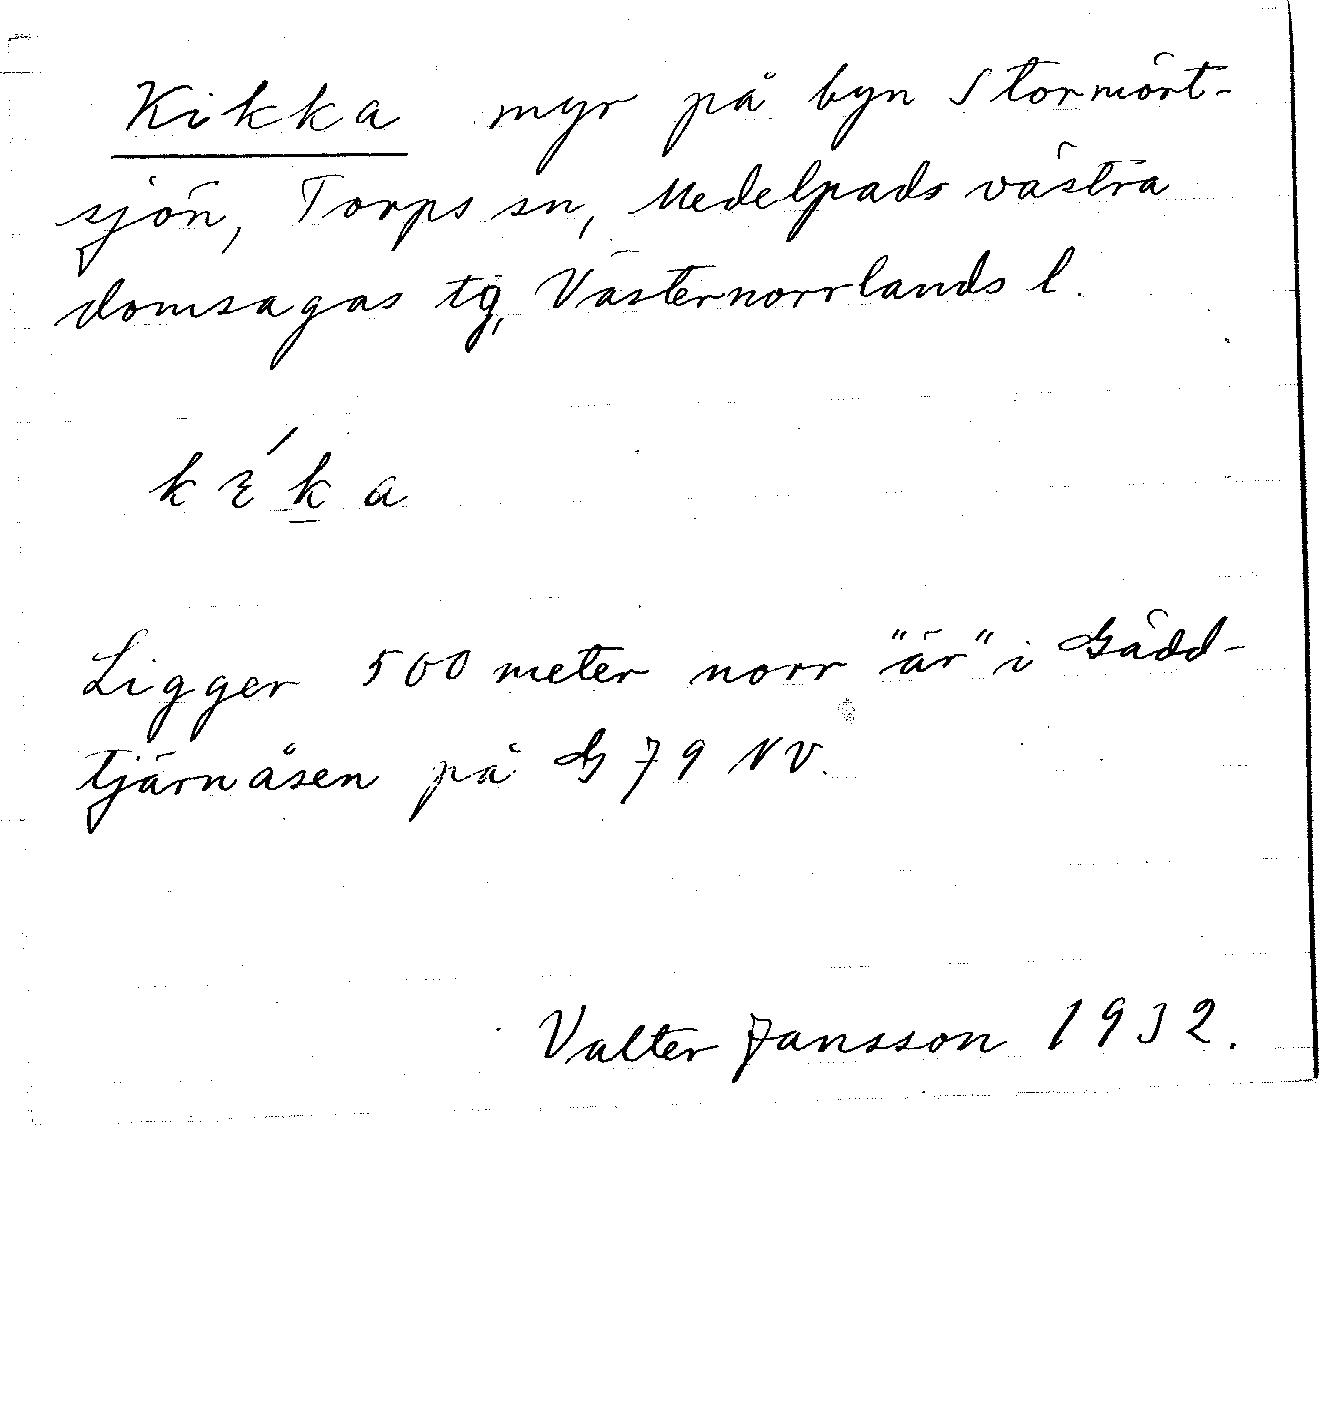 Kikka myr på byn Stormört-
sjön, Torps sn, Medelpads västra
domsagas tg, Västernorrlands l.
Ligger 500 meter norr "är" i Gädd-
tjärnåsen på G 79 NV.
Valter Jansson 1932.